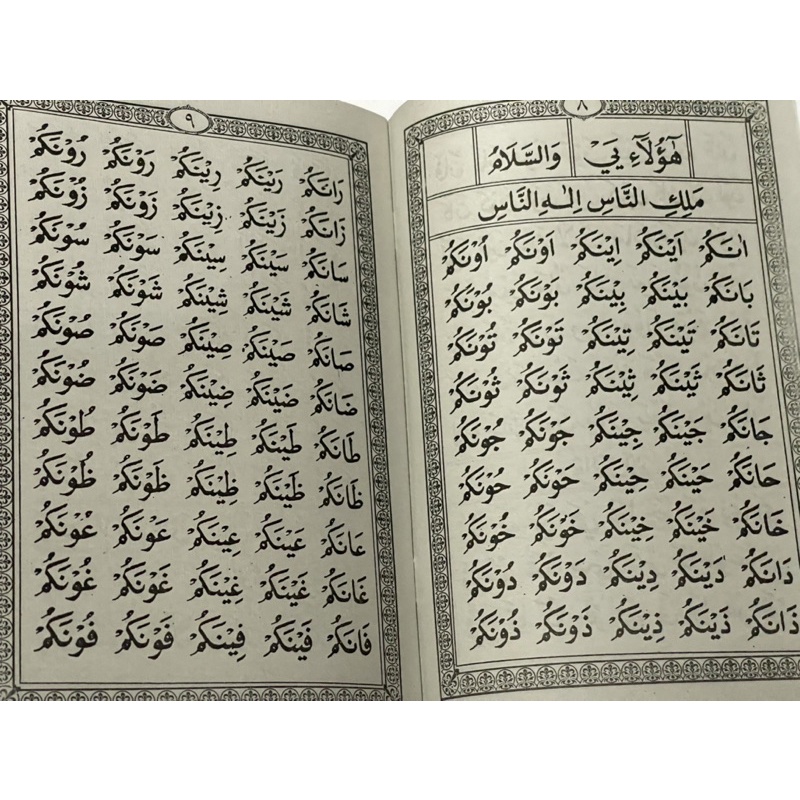 ٨
هٰٓؤُلَآءِ بَيْ وَالسَّلَامُ
مَلِكِ النَّاسِ اِلٰهِ النَّاسِ
اٰنَكُمْ اَيْنَكُمْ اِيْنَكُمْ اَوْنَكُمْ اُوْنَكُمْ
بَانَكُمْ بَيْنَكُمْ بِيْنَكُمْ بَوْنَكُمْ بُوْنَكُمْ
تَانَكُمْ تَيْنَكُمْ تِيْنَكُمْ تَوْنَكُمْ تُوْنَكُمْ
ثَانَكُمْ ثَيْنَكُمْ ثِيْنَكُمْ ثَوْنَكُمْ ثُوْنَكُمْ
جَانَكُمْ جَيْنَكُمْ جِيْنَكُمْ جَوْنَكُمْ جُوْنَكُمْ
حَانَكُمْ حَيْنَكُمْ حِيْنَكُمْ حَوْنَكُمْ حُوْنَكُمْ
خَانَكُمْ خَيْنَكُمْ خِيْنَكُمْ خَوْنَكُمْ خُوْنَكُمْ
دَانَكُمْ دَيْنَكُمْ دِيْنَكُمْ دَوْنَكُمْ دُوْنَكُمْ
ذَانَكُمْ ذَيْنَكُمْ ذِيْنَكُمْ ذَوْنَكُمْ ذُوْنَكُمْ
٩
رَانَكُمْ رَيْنَكُمْ رِيْنَكُمْ رَوْنَكُمْ رُوْنَكُمْ
زَانَكُمْ زَيْنَكُمْ زِيْنَكُمْ زَوْنَكُمْ زُوْنَكُمْ
سَانَكُمْ سَيْنَكُمْ سِيْنَكُمْ سَوْنَكُمْ سُوْنَكُمْ
شَانَكُمْ شَيْنَكُمْ شِيْنَكُمْ شَوْنَكُمْ شُوْنَكُمْ
صَانَكُمْ صَيْنَكُمْ صِيْنَكُمْ صَوْنَكُمْ صُوْنَكُمْ
ضَانَكُمْ ضَيْنَكُمْ ضِيْنَكُمْ ضَوْنَكُمْ ضُوْنَكُمْ
طَانَكُمْ طَيْنَكُمْ طِيْنَكُمْ طَوْنَكُمْ طُوْنَكُمْ
ظَانَكُمْ ظَيْنَكُمْ ظِيْنَكُمْ ظَوْنَكُمْ ظُوْنَكُمْ
عَانَكُمْ عَيْنَكُمْ عِيْنَكُمْ عَوْنَكُمْ عُوْنَكُمْ
غَانَكُمْ غَيْنَكُمْ غِيْنَكُمْ غَوْنَكُمْ غُوْنَكُمْ
فَانَكُمْ فَيْنَكُمْ فِيْنَكُمْ فَوْنَكُمْ فُوْنَكُمْ